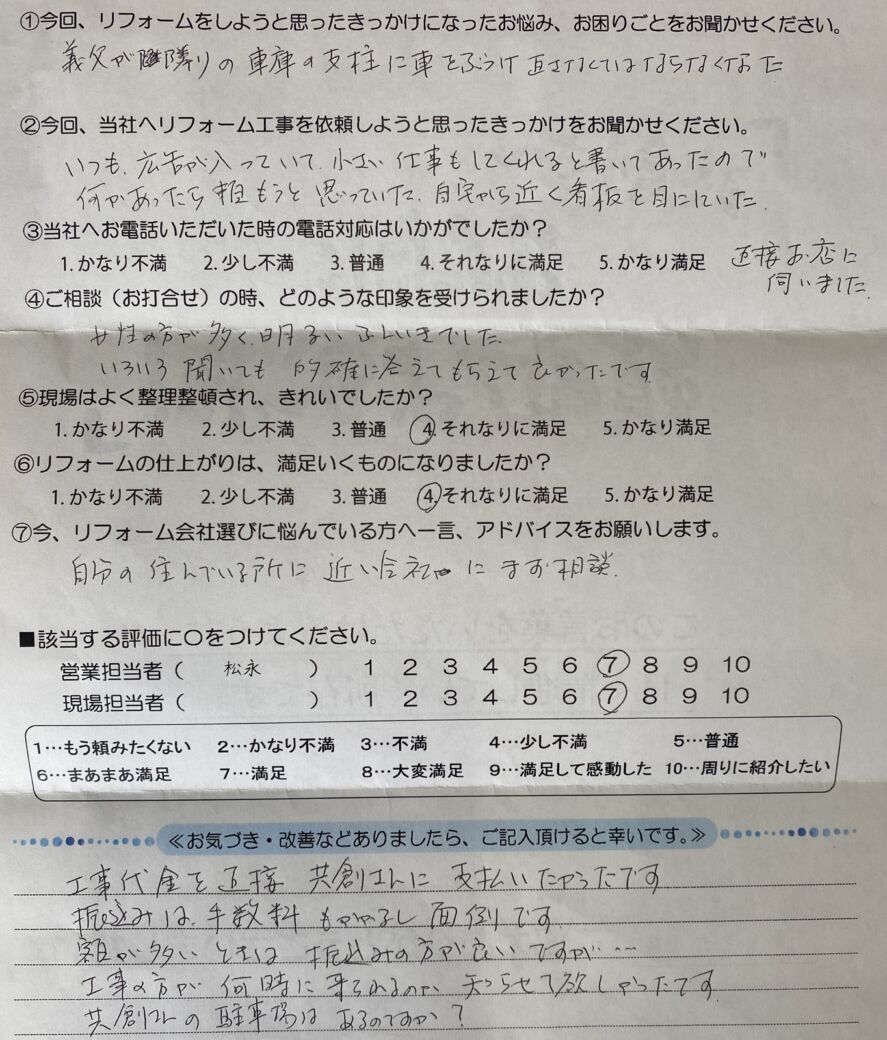 ①今回、リフォームをしようと思ったきっかけになったお悩み、お困りごとをお聞かせください。
義父が隣りの車庫の支柱に車をぶつけ直さなくてはならなくなった
②今回、当社へリフォーム工事を依頼しようと思ったきっかけをお聞かせください。
いつも、広告が入っていて、小さい仕事もしてくれると書いてあったので
何かあったら頼もうと思っていた。自宅から近く看板を目にしていた。
③当社へお電話いただいた時の電話対応はいかがでしたか？
1.かなり不満 2.少し不満 3.普通 4.それなりに満足 5.かなり満足 直接お店に
伺いました。
④ご相談（お打合せ）の時、どのような印象を受けられましたか？
女性の方が多く、明るいふんいきでした。
いろいろ聞いても的確に答えてもらえて良かったです。
⑤現場はよく整理整頓され、きれいでしたか？
1.かなり不満 2.少し不満 3.普通 4.それなりに満足 5.かなり満足
⑥リフォームの仕上がりは、満足いくものになりましたか？
1.かなり不満 2.少し不満 3.普通 4.それなりに満足 5.かなり満足
⑦今、リフォーム会社選びに悩んでいる方へ一言、アドバイスをお願いします。
自分の住んでいる所に近い会社にまず相談。
■該当する評価に〇をつけてください。
営業担当者（ 松永 ） 1 2 3 4 5 6 7 8 9 10
現場担当者（ ） 1 2 3 4 5 6 7 8 9 10
1…もう頼みたくない 2…かなり不満 3…不満 4…少し不満 5…普通
6…まあまあ満足 7…満足 8…大変満足 9…満足して感動した 10…周りに紹介したい
≪お気づき・改善などありましたら、ご記入頂けると幸いです。≫
工事代金を直接共創さんに支払いたかったです
振込みは、手数料もかかるし面倒です。
額が多いときは振込みの方が良いですが…
工事の方が何時に来られるのか、知らせて欲しかったです。
共創さんの駐車場はあるのですか？